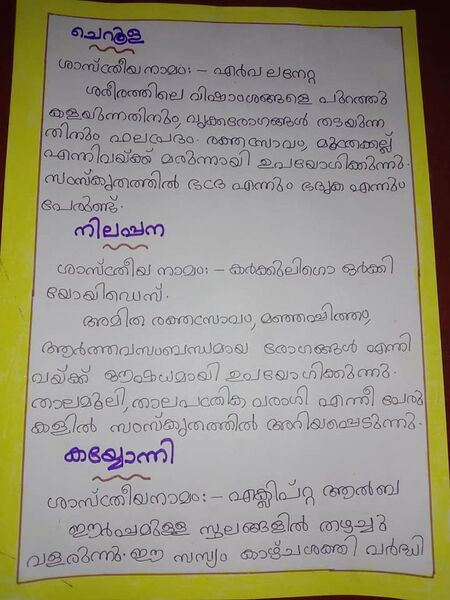 ചെറൂള
ശാസ്ത്രീയ നാമം: - ഏർവ ലനേറ്റ
ശരീരത്തിലെ വിഷാംശങ്ങളെ പുറത്തു
കളയുന്നതിനും, വൃക്കരോഗങ്ങൾ തടയുന്ന
തിനും ഫലപ്രദം. രക്തസ്രാവം, മൂത്രക്കല്ല്
എന്നിവയ്ക്ക് മരുന്നായി ഉപയോഗിക്കുന്നു.
സംസ്കൃതത്തിൽ ഭദ്ര എന്നും ഭദ്രക എന്നും
പേരുണ്ട്.
നിലപ്പന
ശാസ്ത്രീയ നാമം: - കർക്കുലിഗൊ ഒർക്കി
യോയിഡെസ്.
അമിത രക്തസ്രാവം, മഞ്ഞപ്പിത്തം,
ആർത്തവസംബന്ധമായ രോഗങ്ങൾ എന്നി
വയ്ക്ക് ഔഷധമായി ഉപയോഗിക്കുന്നു.
താലമൂലി, താലപത്രിക വരാഗി എന്നീ പേരു
കളിൽ സംസ്കൃതത്തിൽ അറിയപ്പെടുന്നു.
കയ്യോന്നി
ശാസ്ത്രീയനാമം: - എക്ലിപ്റ്റ ആൽബ
ഈർപ്പമുള്ള സ്ഥലങ്ങളിൽ തഴച്ചു
വളരുന്നു. ഈ സസ്യം കാഴ്ചശക്തി വർദ്ധി